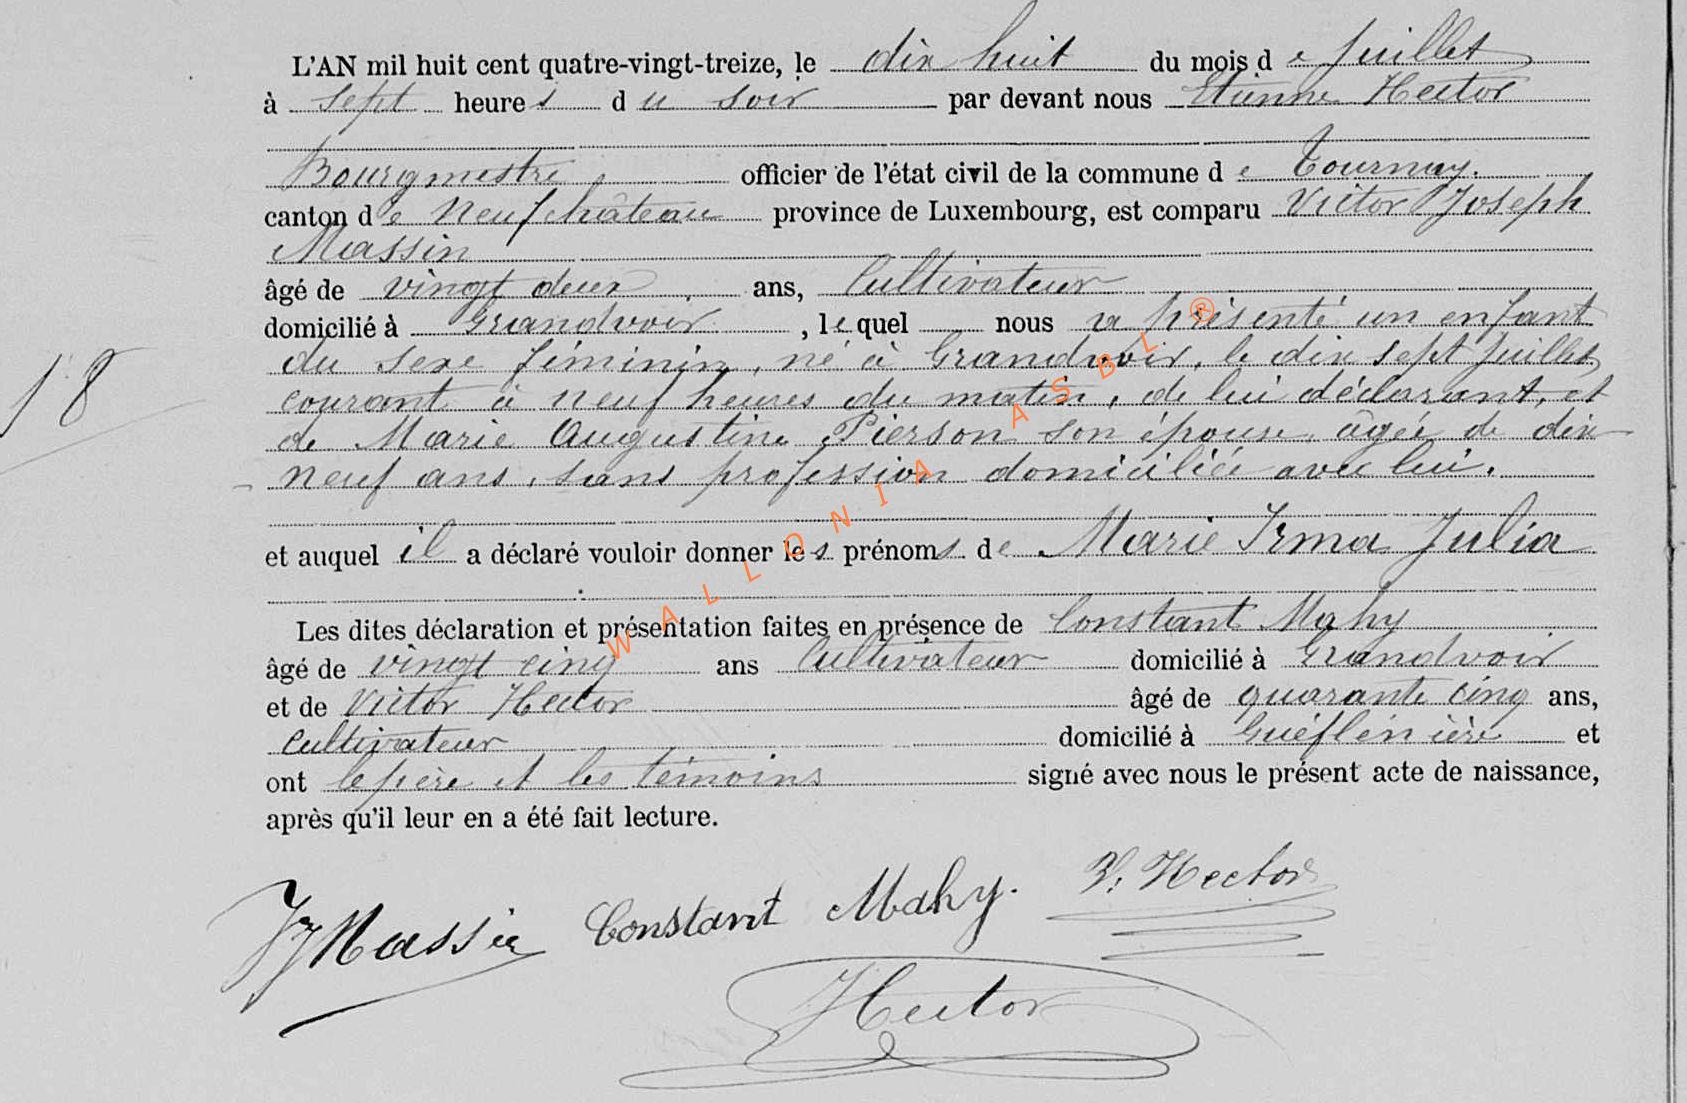 L'AN mil huit cent quatre-vingt-treize, le dix huit du mois de juillet
à sept heures du soir par devant nous Etienne Hector
Bourgmestre officier de l'état civil de la commune de Tournay.
canton de Neufchâteau province de Luxembourg, est comparu Victor Joseph
Massin
âgé de vingt deux ans, Cultivateur
domicilié à Grandvoir , lequel nous a présenté un enfant
du sexe féminin, né à Grandvoir, le dix sept juillet
18
courant à neuf heures du matin, de lui déclarant, et
de Marie Augustine Pierson son épouse, âgée de dix
neuf ans, sans profession domiciliée avec lui.
et auquel il a déclaré vouloir donner les prénoms de Marie Irma Julia
Les dites déclaration et présentation faites en présence de Constant Mahy
âgé de vingt cinq ans Cultivateur domicilié à Grandvoir
et de Victor Hector âgé de quarante cinq ans,
Cultivateur domicilié à Gueflénière et
ont le père et les témoins signé avec nous le présent acte de naissance,
après qu'il leur en a été fait lecture.
VJMassin Constant Mahy. V. Hector
Hector
WALLONIA ASBL ®